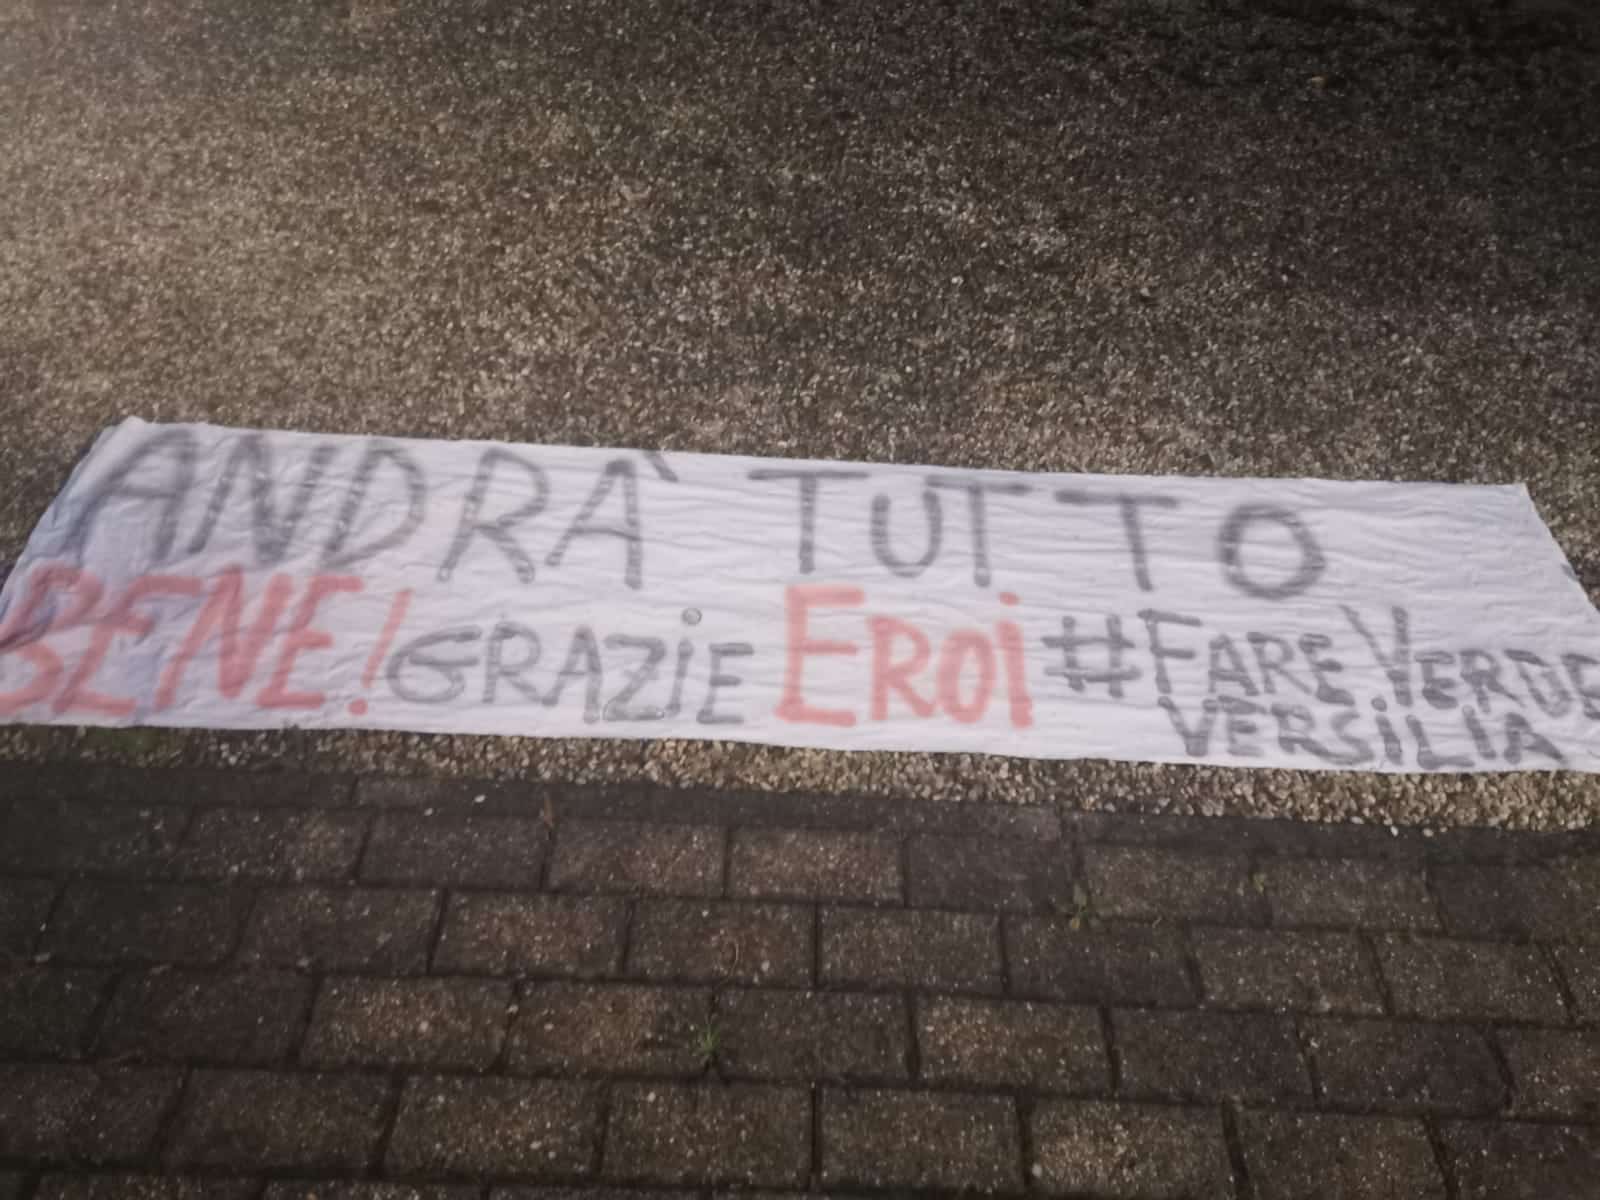 ANDRA' TUTTO
BENE! GRAZIE EROI #FARE VERDE
VERSILIA